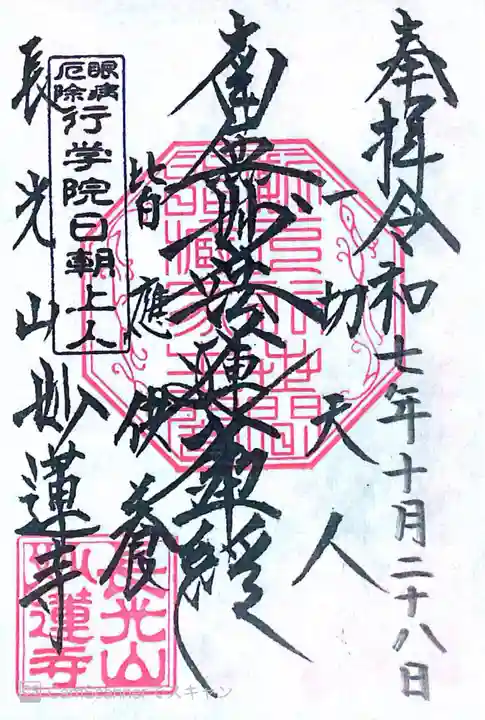 奉拝 令和七年十月二十八日
一切天人
南無妙法蓮華経
皆應供養
眼病
厄除
行学院日朝上人
長光山妙蓮寺
長光山
妙蓮寺
CamScannerでスキャン